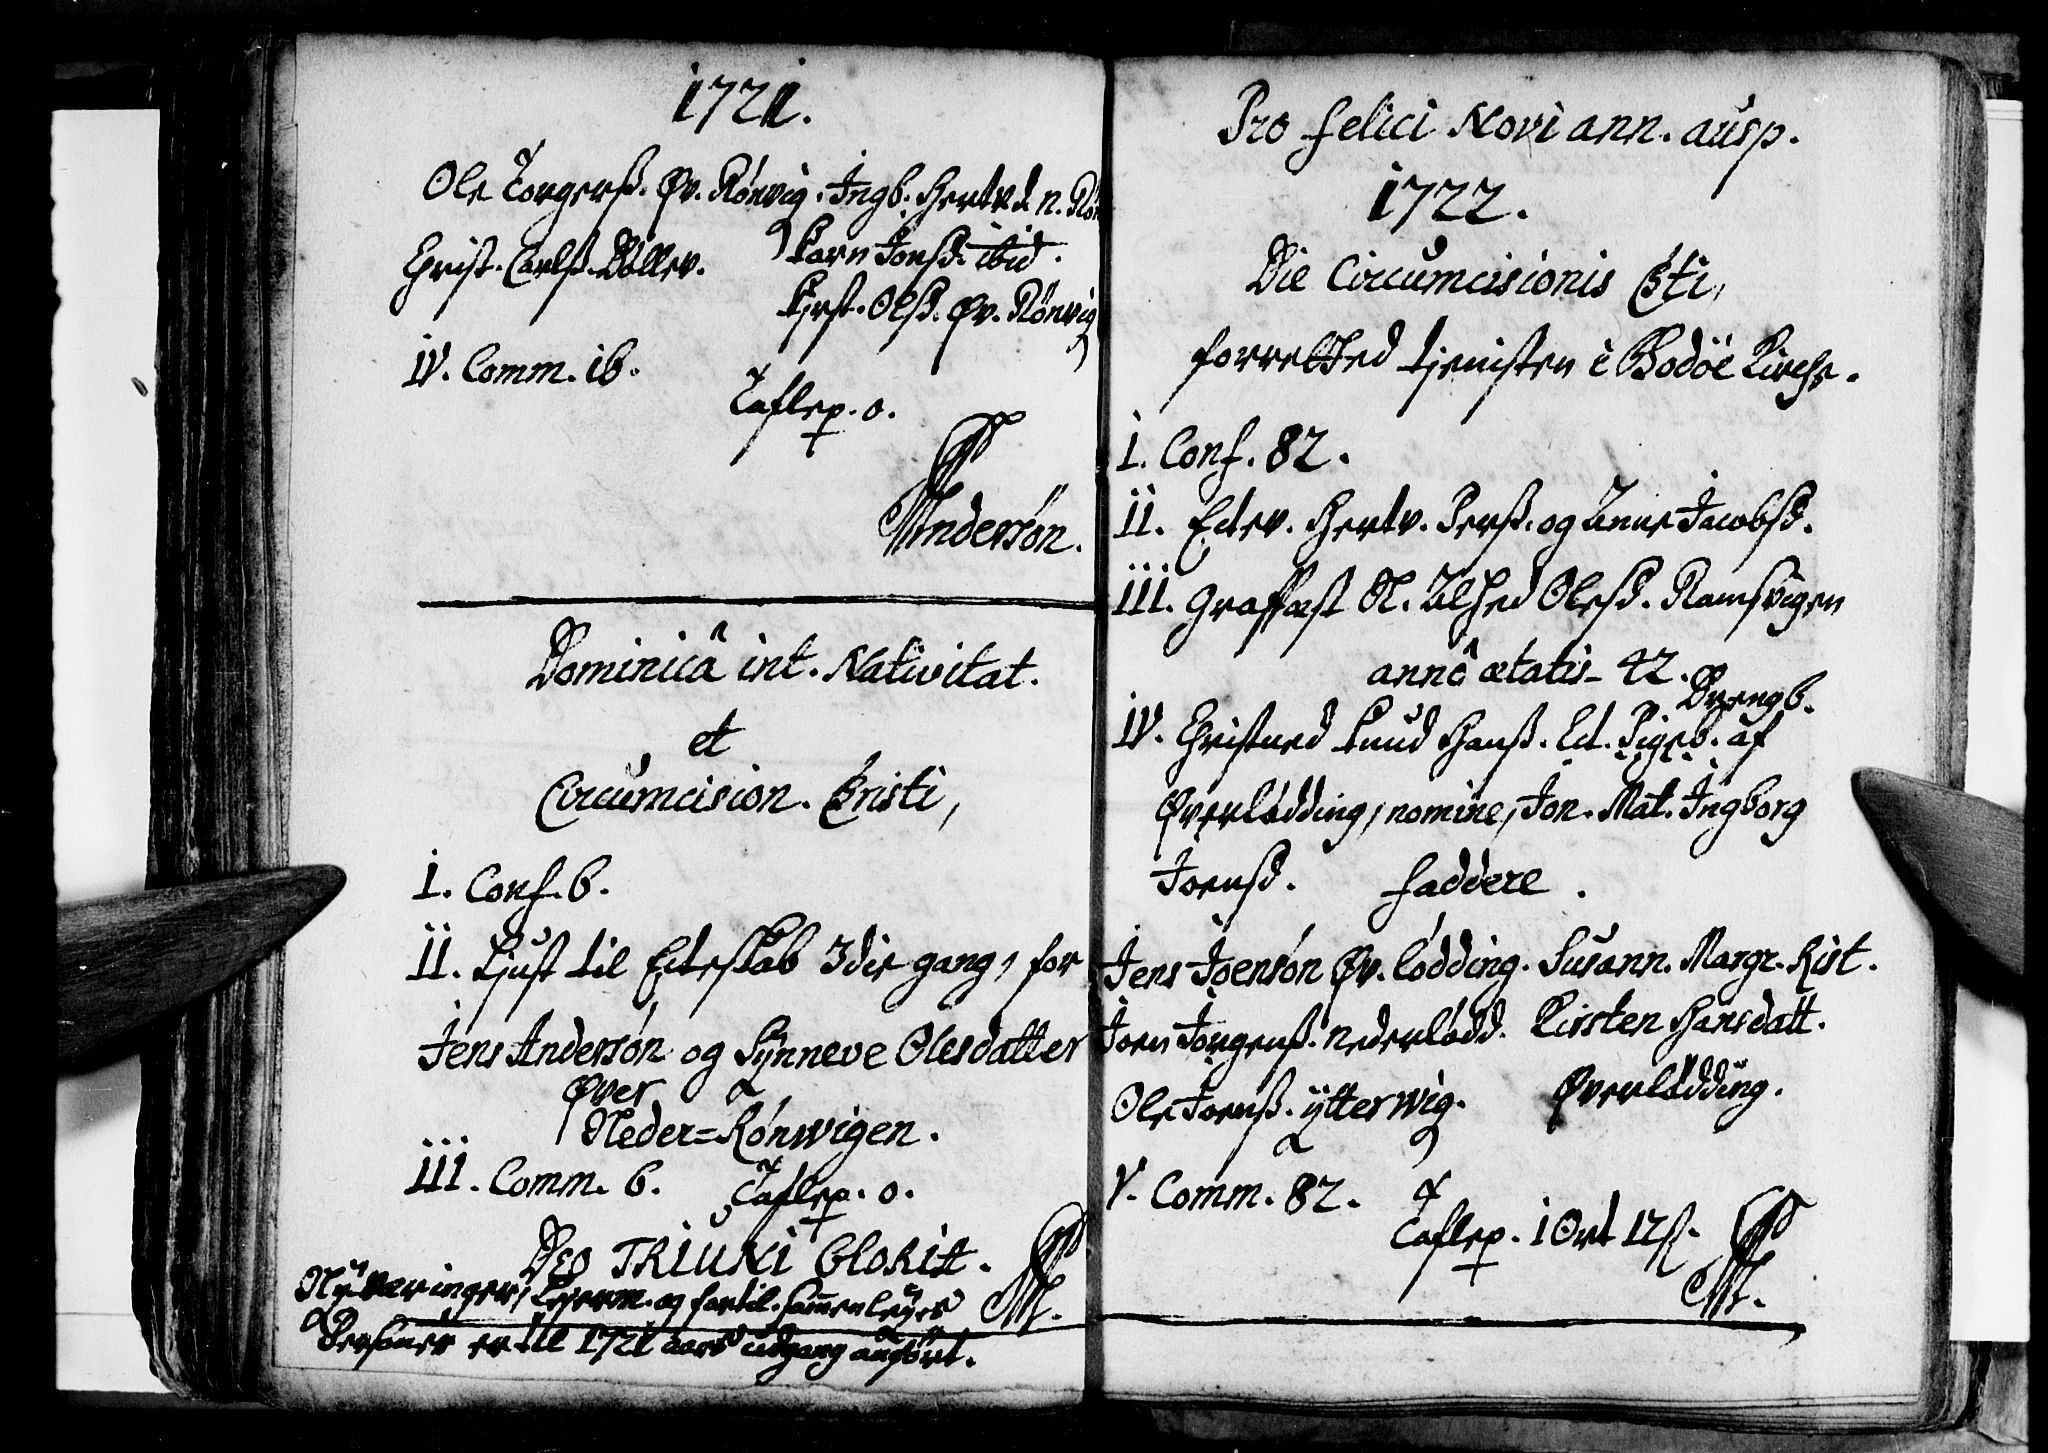 1721.
Ole Torgerß. Øv. Rönvig. Ingb. Hertvd. n. Rön
Christ. Carlß. Döller. Karn Jonsd. ibid.
Kirst. Olsd. Øv. Rönvig
IV. Comm. 16. Taflep. 0.
Andersön.
Dominicâ int. Nativitat.
et
Circumcision. Christi,
I. Conf. 6.
II. Liust til Ecteskab 3die gang, for
Jens Andersön og Synneve Olesdatter
Øver
Neder=Rönwigen.
III. Comm. 6. Taflep. 0.
DEO TRIUNI GLORIA.
og fortil. Sammenleyes
Personer er til 1721 aars udgang anfört.
Pro felici Novi ann. ausp.
1722.
Die Circumcisionis Chsti,
forretted tjenisten i Bodöe Kirche.
I. Conf. 82.
II. Ectev. Hertv. Perß. og Anne Jacobsd.
III. Graffæst Alhed Olesd. Ramsvigen
annô ætatis 42.
Drengb.
IV. Christned Knud Hanß. Ect. Pigeb. af
Øverlödding, nomine, Jon. Mat. Ingborg
Joensd. Faddere.
Jens Joensön Øv. lödding. Susann. Margr. Rist.
Joen Jörgenß. nederlödd. Kirsten Hansdatt.
Ole Joenß. ytterwig. Øverlödding.
V. Comm. 82.
Taflep. 1 Ort 12 ß.